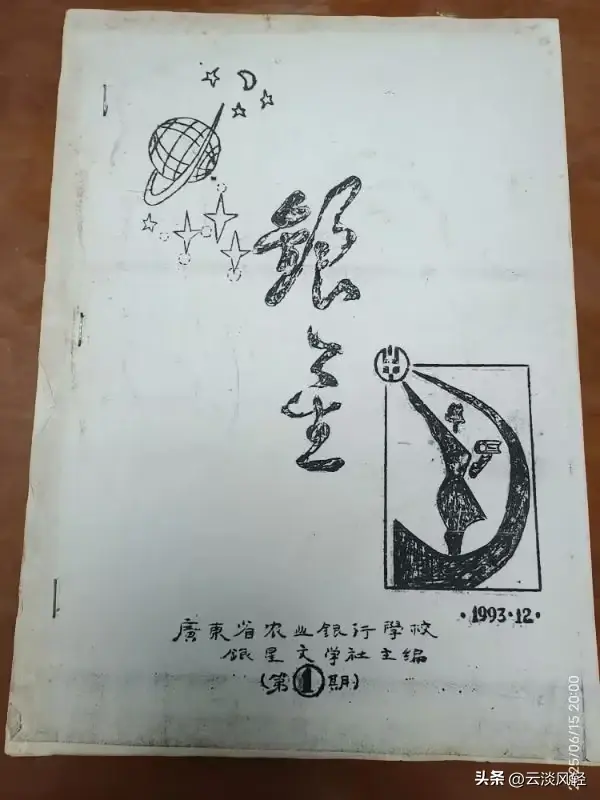 銀
星
·1993·12·
廣東省农业银行學校
银星文学社主编
(第1期)
2025/06/15 20:00
头条 @云淡风轻